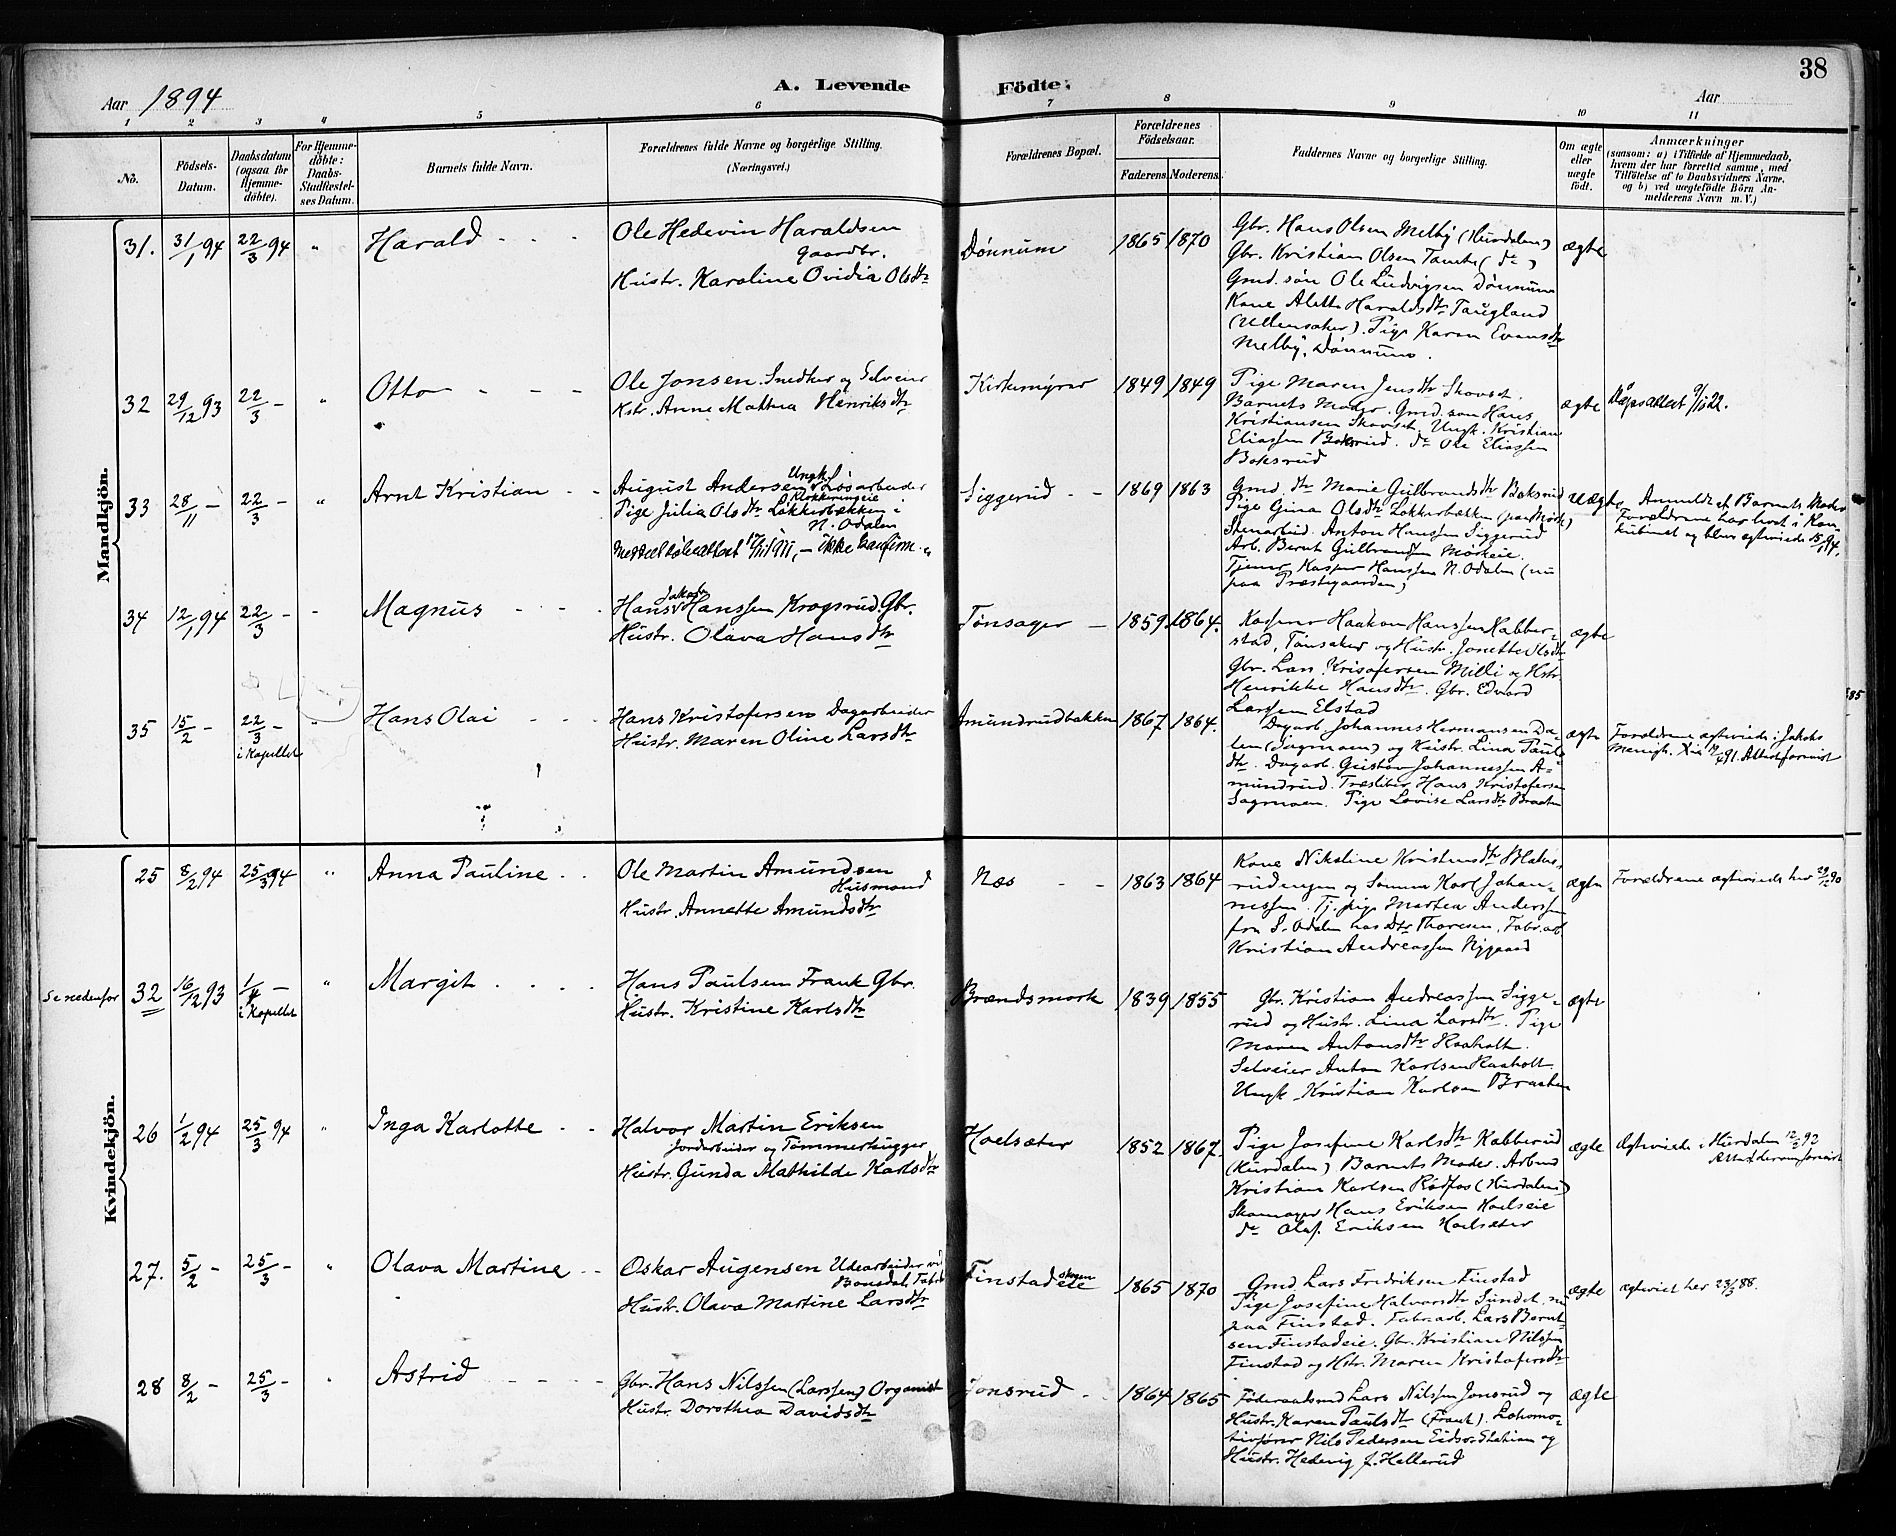 38
A. Levende Födte.
Aar 1894
Aar
1 2 3 4 5 6 7 8 9 10 11
No.
Födsels-Datum.
Daabsdatum (ogsaa for Hjemme-döbte).
For Hjemme-döbte: Daabs-Stadfæstel-ses Datum.
Barnets fulde Navn.
Forældrenes fulde Navne og borgerlige Stilling. (Næringsvei.)
Forældrenes Bopæl.
Forældrenes Födselsaar.
Faderens. Moderens.
Faddernes Navne og borgerlige Stilling.
Om ægte eller uægte födt.
Anmærkninger
(saasom: a) i Tilfælde af Hjemmedaab,
hvem der har forrettet samme, med
Tilföielse af to Daabsvidners Navne,
og b) ved uægtefödte Börn An-
melderens Navn m. V.)
Mandkjön.
31. 31/1 94 22/3 94 " Harald
Ole Hedevin Haraldsen
Gaardbr.
Hustr. Karoline Ovidia Olsdtr
Dönnum 1865 1870
Gbr. Hans Olsen Melby (Hurdalen)
Gbr. Kristian Olsen Tømte (do)
Gmd. søn Ole Ludvigsen Dönnum
Kone Alette Haraldsdtr Taugland
(Ullensaker). Pige Karen Evensdtr
Melby, Dönnum.
ægte
32 29/12 93 22/3 - " Otto
Ole Jonsen. Snedker og Selveier
Kstr. Anne Mathea Henriksdtr
Kirkemyrer 1849 1849
Pige Maren Jensdtr Skovset.
Barnets Moder. Gmd. søn Hans
Kristiansen Skovset. Ungk. Kristian
Eliassen Boksrud. do Ole Eliassen
Boksrud
ægte
Dåpsattest 9/10 22.
33 28/11 - 22/3 - " Arnt Kristian
Ungk.
August Andersen Løsarbeider
Pige Julia Olsdtr Løkkerbækken i
N. Odalen
ikke konfirm.
Siggerud 1869 1863
Gmd. dtr Marie Gulbrandsdtr Boksrud
Pige Gina Olsdtr Løkkerbækken (paa Mørk)
Stenarbeid. Anton Hanssen Siggerud
Arb. Bernt Gulbrandsen Mørkeie.
Tjener Kasper Hanssen N. Odalen (nu
paa Præstegaarden)
uægte
Anmeldt af Barnets Moder
Forældrene har levet i Kon-
kubinat og blev ægteviede 15/1 94.
34 12/1 94 22/3 - " Magnus
Jakob
Hans Hanssen Krogsrud. Gbr.
Hustr. Olava Hansdtr
Tönsager 1859. 1864.
Kasserer Haakon Hanssen Habber-
stad, Tønsaker og Hustr. Jonette Olsdtr
Gbr. Lars Kristofersen Milli og Hstr.
Henrikke Hansdtr. Gbr. Edvard
Larssen Elstad
ægte
35 15/2 - 22/3 - i Kapellet " Hans Olai
Hans Kristofersen Dagarbeider
Hustr. Maren Oline Larsdtr
Amundrudbakken 1867 1864.
Dagarb. Johannes Hermansen Da-
len (Sagmoen) og Hustr. Lina Pauls
dtr. Dagarb. Gustav Johannessen A-
mundrud. Træsliber Hans Kristofersen
Sagmoen. Pige Lovise Larsdtr Braaten
ægte
Forældrene ægteviede i Jakobs
Menigh. Attest forevist
85
Kvindekjön.
25 8/2 94 25/3 94 " Anna Pauline
Ole Martin Amundsen
Husmand
Hustr. Annette Amundsdtr
Næs 1863 1864
Kone Nikoline Kristensdtr
og Sønnen Karl Johan-
nessen. Tj. pige Martea Anderssen
fra S. Odalen hos Dtr Thoresen, Fabr. arb.
Kristian Andreassen Nygaard
ægte
Forældrene ægteviede her 29/12 90
Se nedenfor 32 16/12 93 1/4 - i Kapellet " Margit
Hans Paulsen Frank Gbr.
Hustr. Kristine Karlsdtr
Brændsmork 1839 1855
Gbr. Kristian Andreassen Sigge-
rud og Hustr. Lina Larsdtr. Pige
Maren Antonsdtr Raaholt.
Selveier Anton Karlsen Raaholt
Ungk. Kristian Karlsen Braaten
ægte
26 1/2 94 25/3 94 " Inga Karlotte
Halvor Martin Eriksen
Jordarbeider og Tömmerhugger
Hustr. Gunda Mathilde Karlsdtr
Hoelsæter 1852 1867.
Pige Josefine Karlsdtr Kabberud
(Hurdalen) Barnets Moder. Arbeid
Kristian Karlsen Rødfos (Hurdalen)
Skomager Hans Eriksen Hoelseie
do Olaf Eriksen Hoelsæter
ægte
Ægteviede i Hurdalen 12/2 92
27. 5/2 - 25/3 - " Olava Martine
Oskar Augensen Udearbeider ved
Bönsdal. Fabr.
Hustr. Olava Martine Larsdtr
Finstadskogen eie 1865 1870
Gmd Lars Fredriksen Finstad
Pige Josefine Halvorsdtr Sundet, nu
paa Finstad. Fabr.arb. Lars Bernt-
sen Finstadeie. Gbr. Kristian Nilssen
Finstad og Hstr. Maren Kristofersdtr
ægte
ægteviet her 23/3 88.
28 8/2 - 25/3 - " Astrid
Gbr. Hans Nilssen (Larssen) Organist
Hustr. Dorothea Davidsdtr
Jonsrud 1864 1865
Föderaadsmd Lars Nilssen Jonsrud og
Hustr. Karen Paulsdtr (Frank). Lokomo-
tivfører Nils Pedersen Eidsv. Station og
Hustr. Hedevig f. Hellerud
ægte